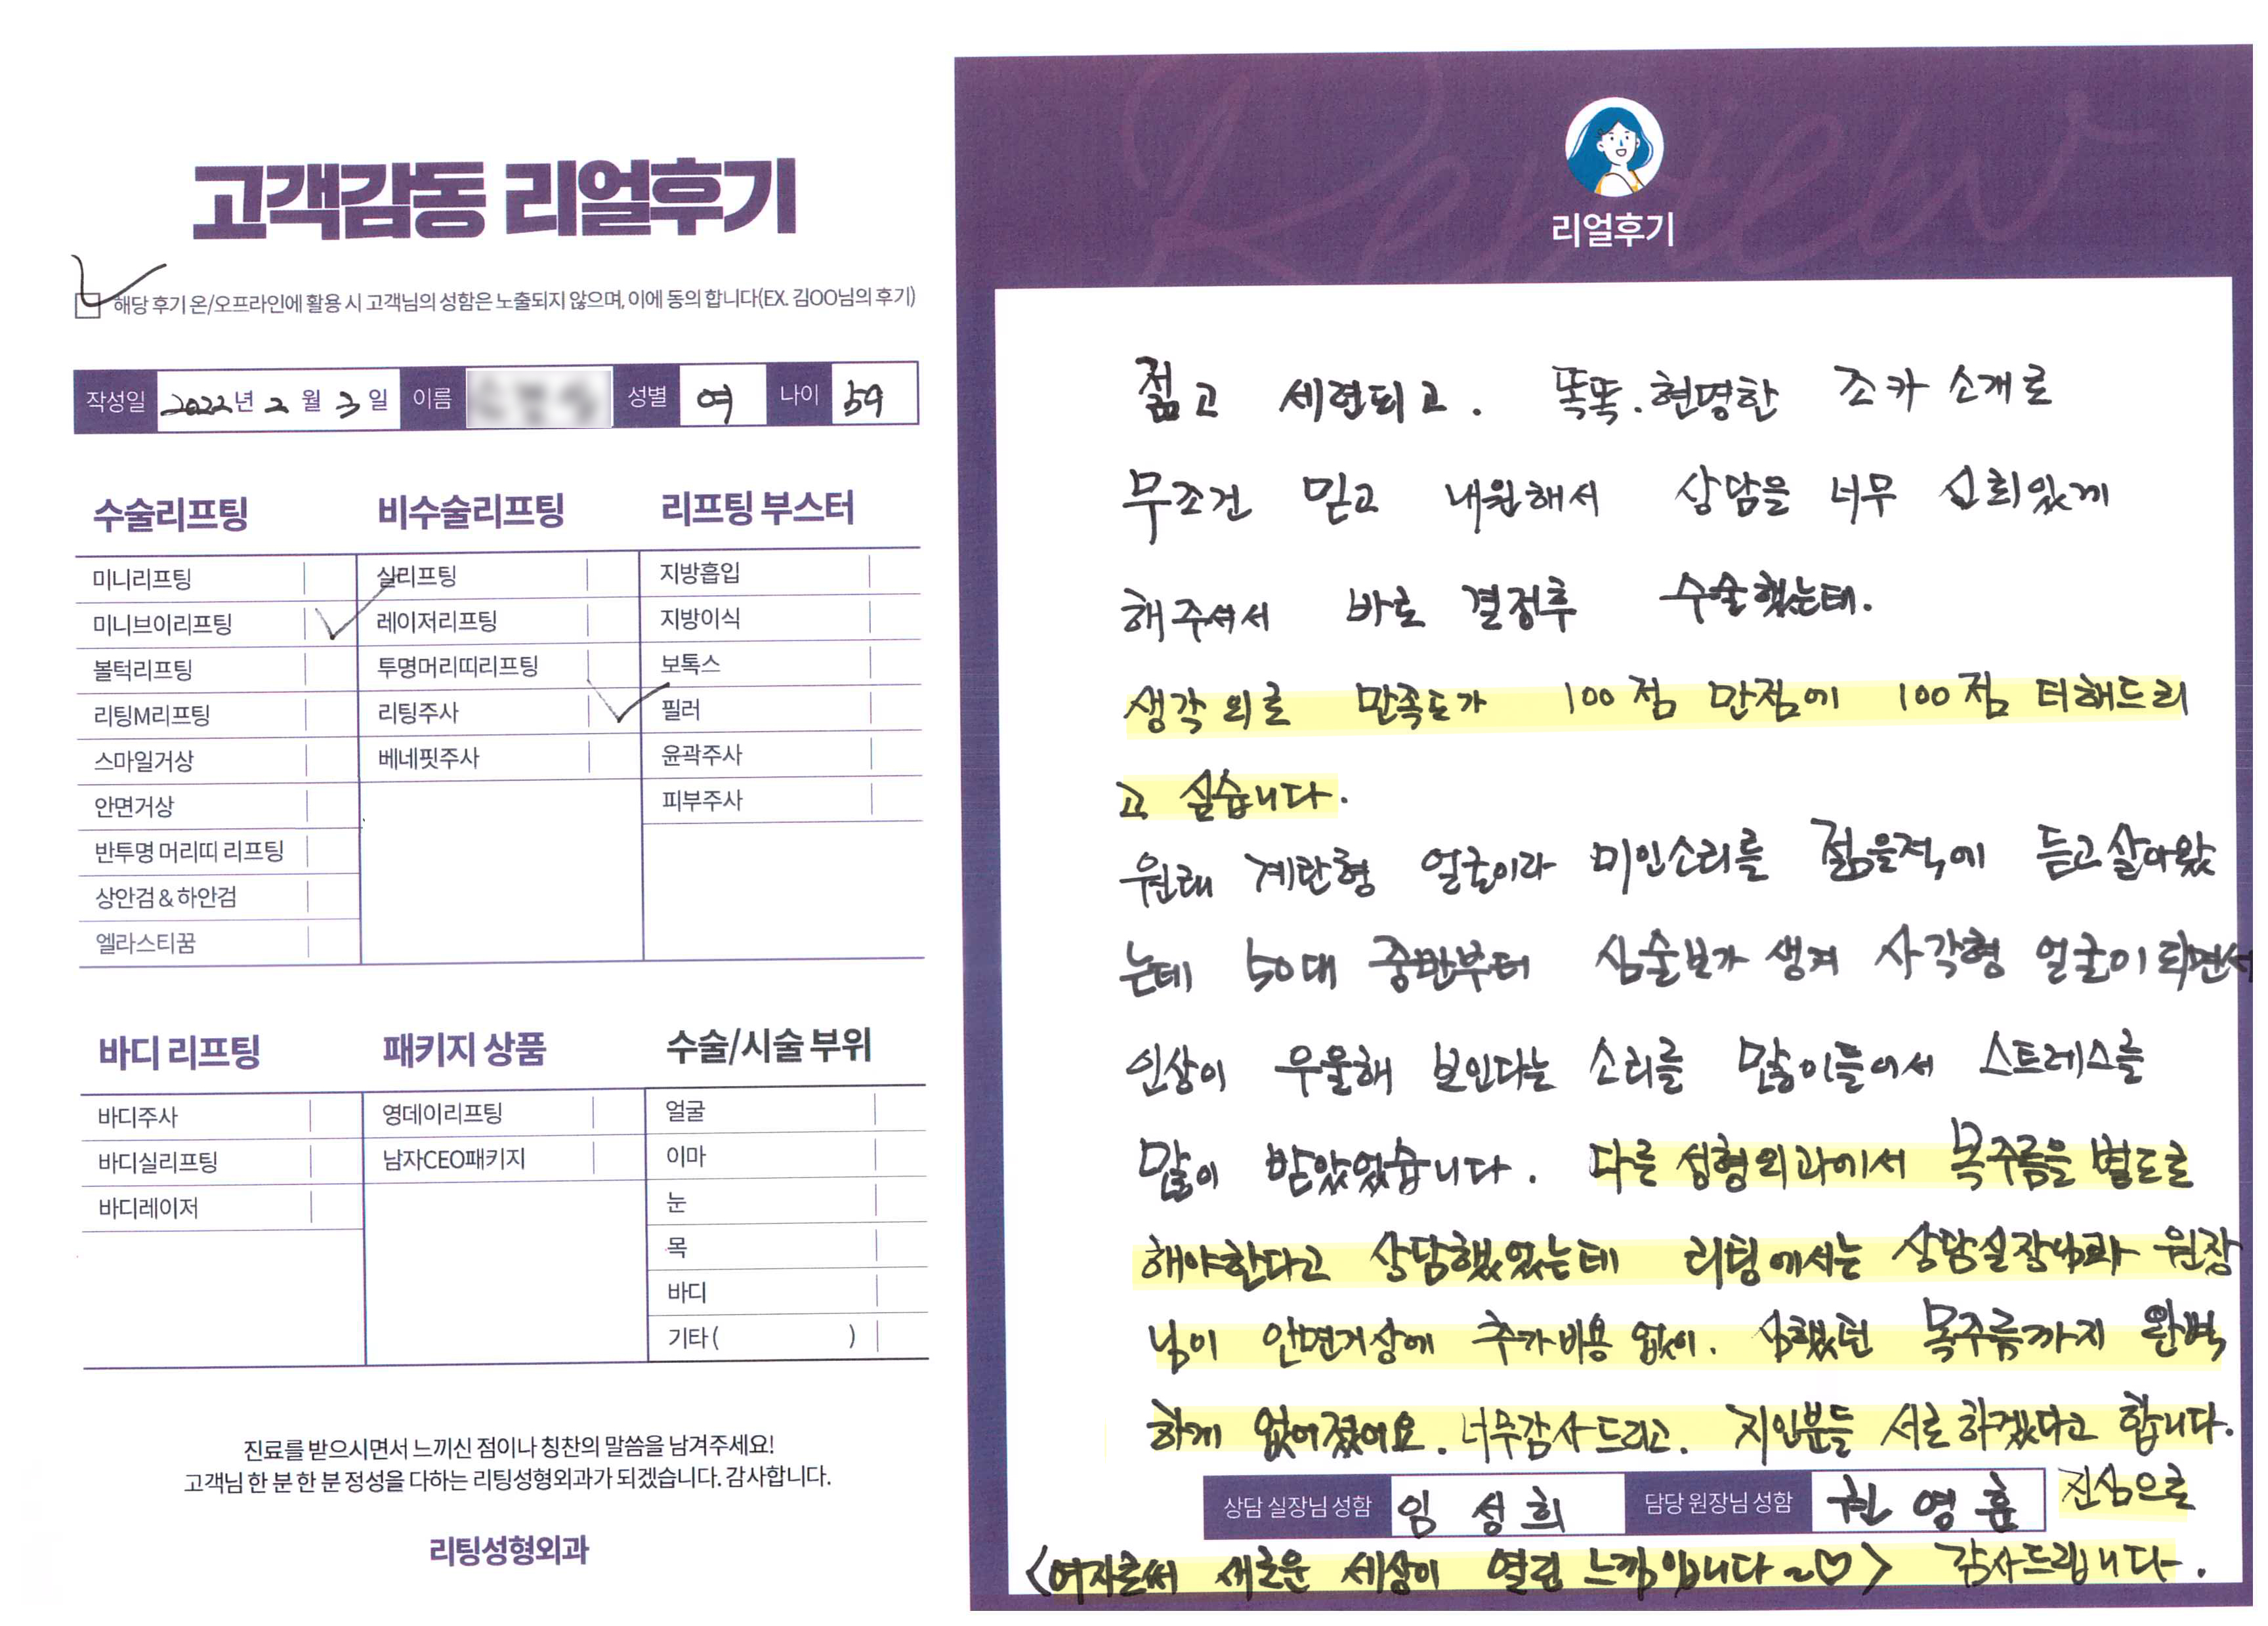 고객감동 리얼후기
해당 후기 온/오프라인에 활용 시 고객님의 성함은 노출되지 않으며, 이에 동의 합니다(EX. 김OO님의 후기)
작성일 2022년 2월 3일 이름 성별 여 나이 59
수술리프팅
미니리프팅
미니브이리프팅
볼턱리프팅
리팅M리프팅
스마일거상
안면거상
반투명 머리띠 리프팅
상안검 & 하안검
엘라스티꿈
비수술리프팅
실리프팅
레이저리프팅
투명머리띠리프팅
리팅주사
베네핏주사
리프팅 부스터
지방흡입
지방이식
보톡스
필러
윤곽주사
피부주사
바디 리프팅
바디주사
바디실리프팅
바디레이저
패키지 상품
영데이리프팅
남자CEO패키지
수술/시술 부위
얼굴
이마
눈
목
바디
기타 ( )
진료를 받으시면서 느끼신 점이나 칭찬의 말씀을 남겨주세요!
고객님 한 분 한 분 정성을 다하는 리팅성형외과가 되겠습니다. 감사합니다.
리팅성형외과
Review
리얼후기
젊고 세련되고. 똑똑.현명한 조카 소개로
무조건 믿고 내원해서 상담을 너무 신뢰있게
해주셔서 바로 결정후 수술했는데.
생각외로 만족도가 100점 만점에 100점 더해드리
고 싶습니다.
원래 계란형 얼굴이라 미인소리를 젊을적에 듣고살아왔
는데 50대 중반부터 심술보가 생겨 사각형 얼굴이 되면서
인상이 우울해 보인다는 소리를 많이들어서 스트레스를
많이 받았었습니다. 다른 성형외과에서 목주름을 별도로
해야한다고 상담했었는데 리팅에서는 상담실장님과 원장
님이 안면거상에 추가비용 없이. 심했던 목주름까지 완벽
하게 없어졌어요. 너무감사드리고. 지인분들 서로하겠다고 합니다.
상담 실장님 성함 임성희 담당 원장님 성함 권영훈 진심으로
<여자로써 새로운 세상이 열린 느낌입니다~♡> 감사드립니다.